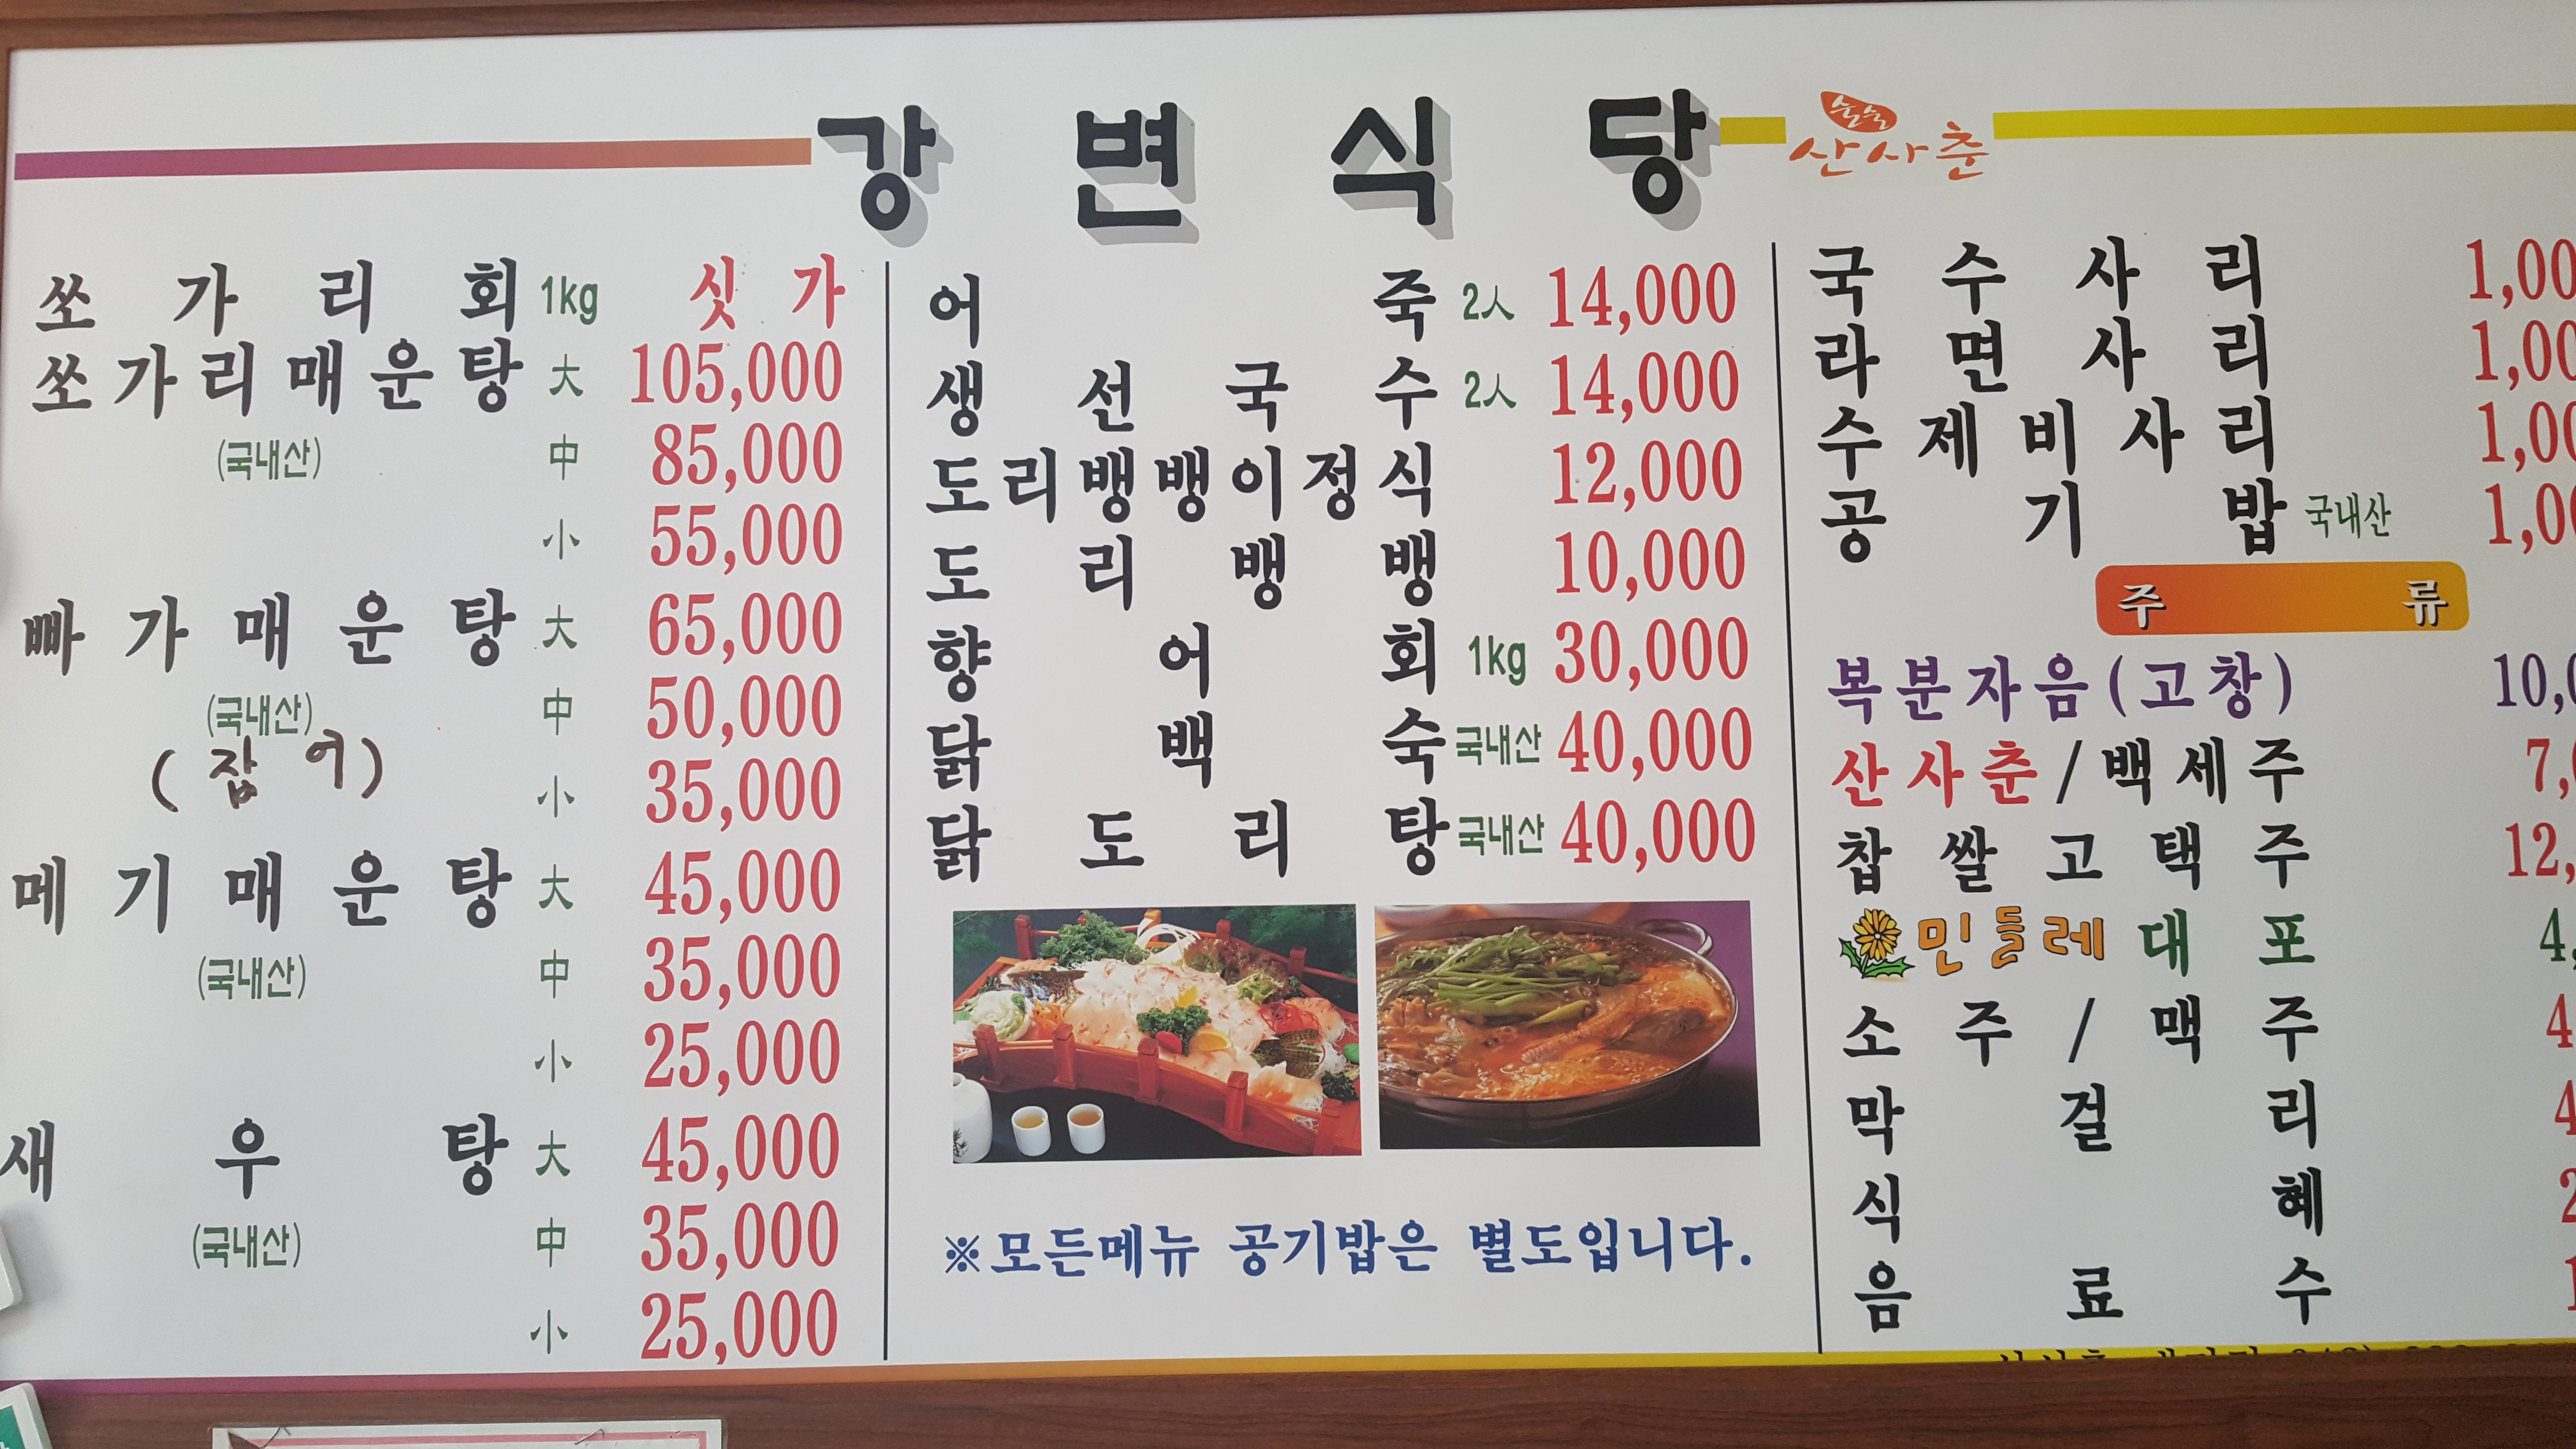 강변식당
산사춘
쏘가리회 1kg 싯가
쏘가리매운탕 大 105,000
(국내산) 中 85,000
小 55,000
빠가매운탕 大 65,000
(국내산) 中 50,000
(잡어) 小 35,000
메기매운탕 大 45,000
(국내산) 中 35,000
小 25,000
새우탕 大 45,000
(국내산) 中 35,000
小 25,000
어죽 2人 14,000
생선국수 2人 14,000
도리뱅뱅이정식 12,000
도리뱅뱅 10,000
향어회 1kg 30,000
닭백숙 국내산 40,000
닭도리탕 국내산 40,000
※모든메뉴 공기밥은 별도입니다.
국수사리 1,00
라면사리 1,00
수제비사리 1,00
공기밥 국내산 1,00
주류
복분자음(고창) 10,0
산사춘/백세주 7,
찹쌀고택주 12,
민들레대포 4,
소주/맥주 4
막걸리 4
식혜 2
음료수 1